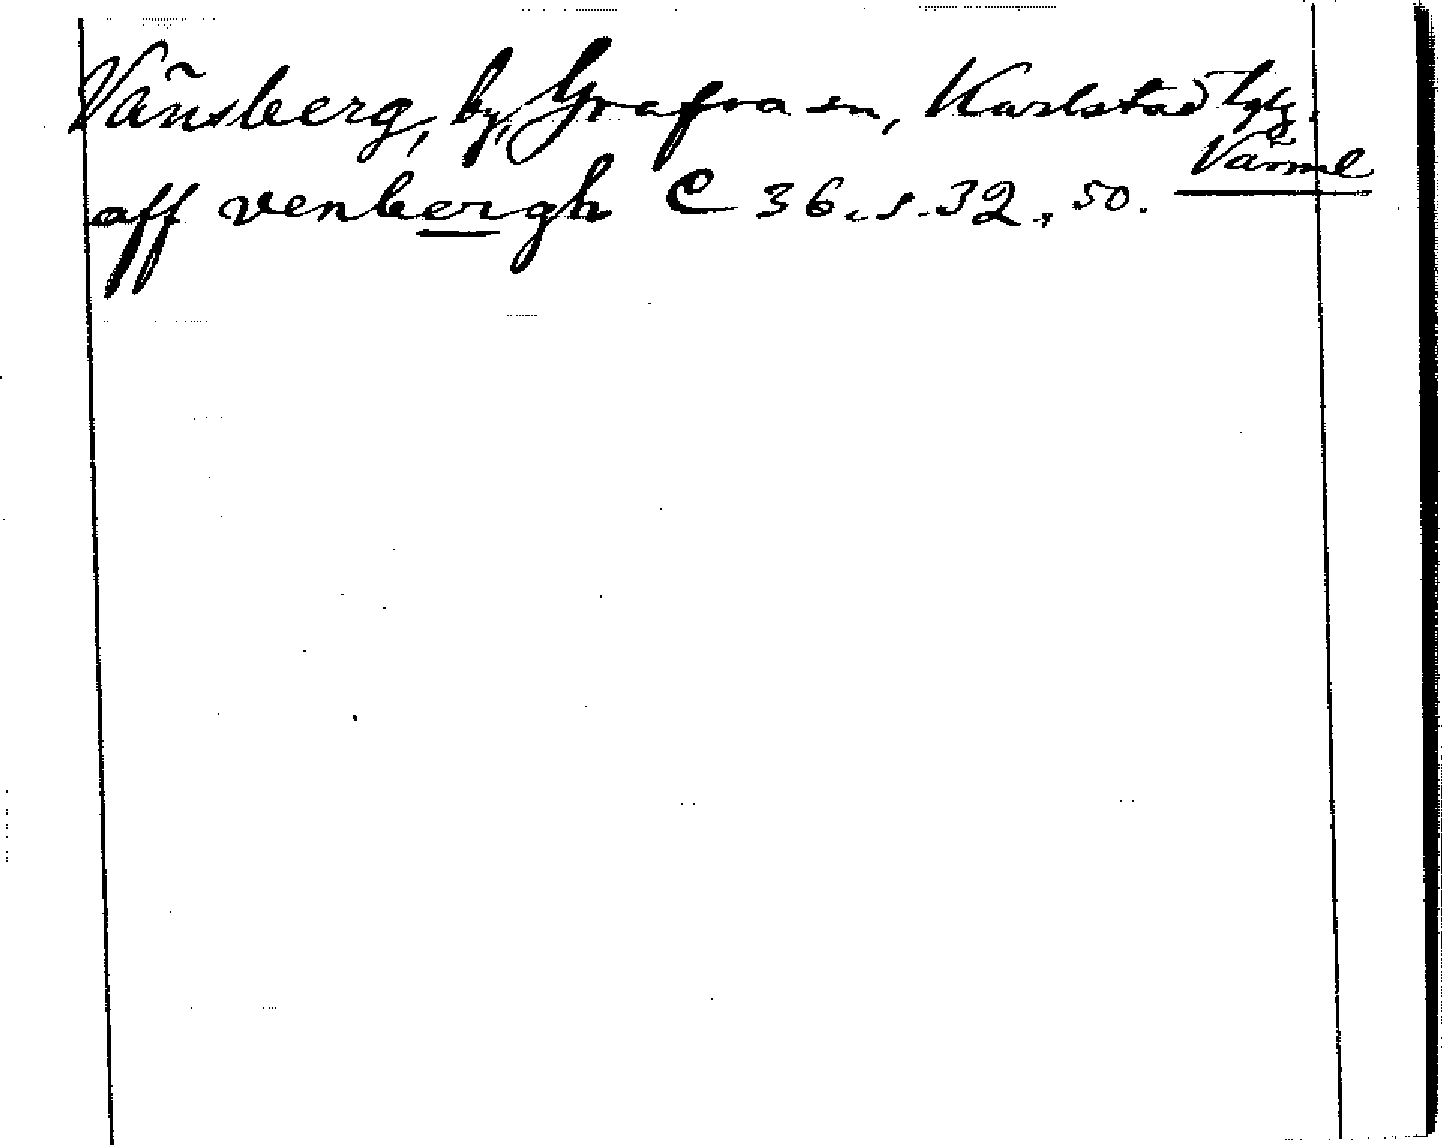 Vänsberg, by, Grafva sn, Karlstad tgslg.
Värml
aff venbergh C 36, s. 32, 50.